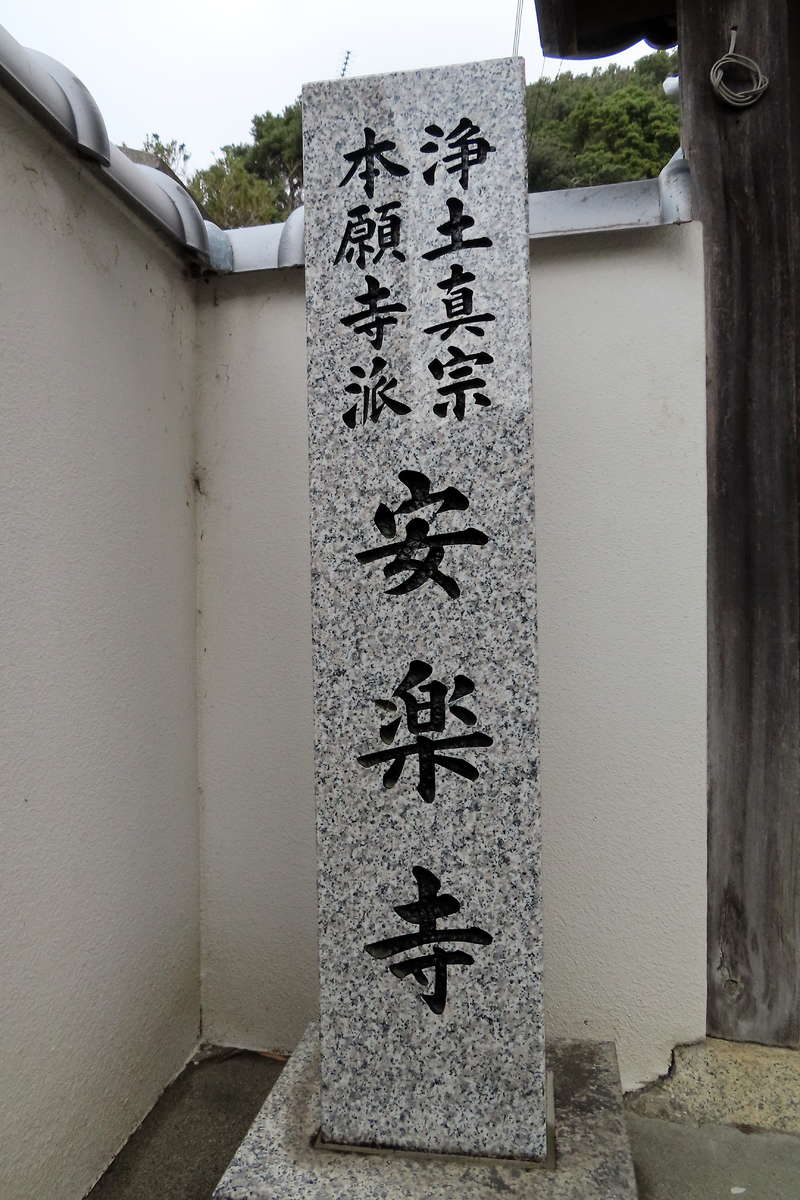 浄土真宗
本願寺派
安楽寺